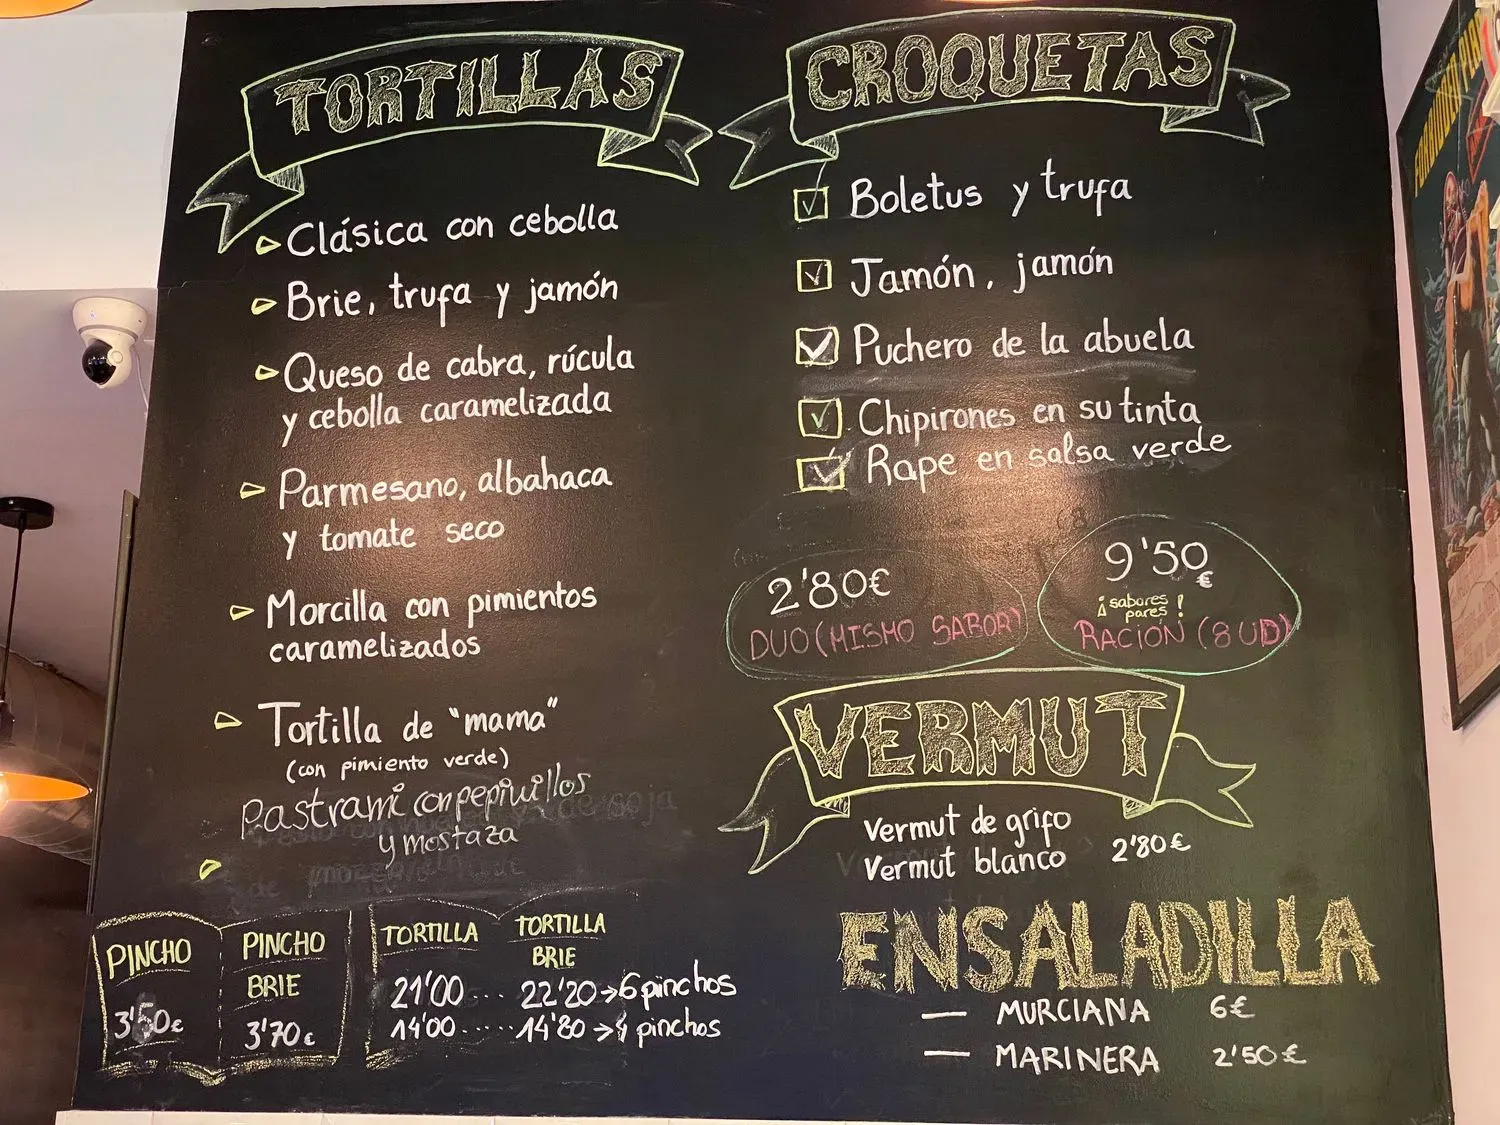 TORTILLAS
Clásica con cebolla
Brie, trufa y jamón
Queso de cabra, rúcula
y cebolla caramelizada
Parmesano, albahaca
y tomate seco
Morcilla con pimientos
caramelizados
Tortilla de "mama"
(con pimiento verde)
Pastrami con pepinillos
y mostaza
PINCHO
3'50€
PINCHO
BRIE
3'70€
TORTILLA TORTILLA
BRIE
21'00 ... 22'20 → 6 pinchos
14'00 ..... 14'80 → 4 pinchos
CROQUETAS
Boletus y trufa
Jamón, jamón
Puchero de la abuela
Chipirones en su tinta
Rape en salsa verde
2'80€
DUO (MISMO SABOR)
9'50€
¡sabores
pares!
RACION (8 UD)
VERMUT
Vermut de grifo
Vermut blanco 2'80€
ENSALADILLA
— MURCIANA 6€
— MARINERA 2'50€